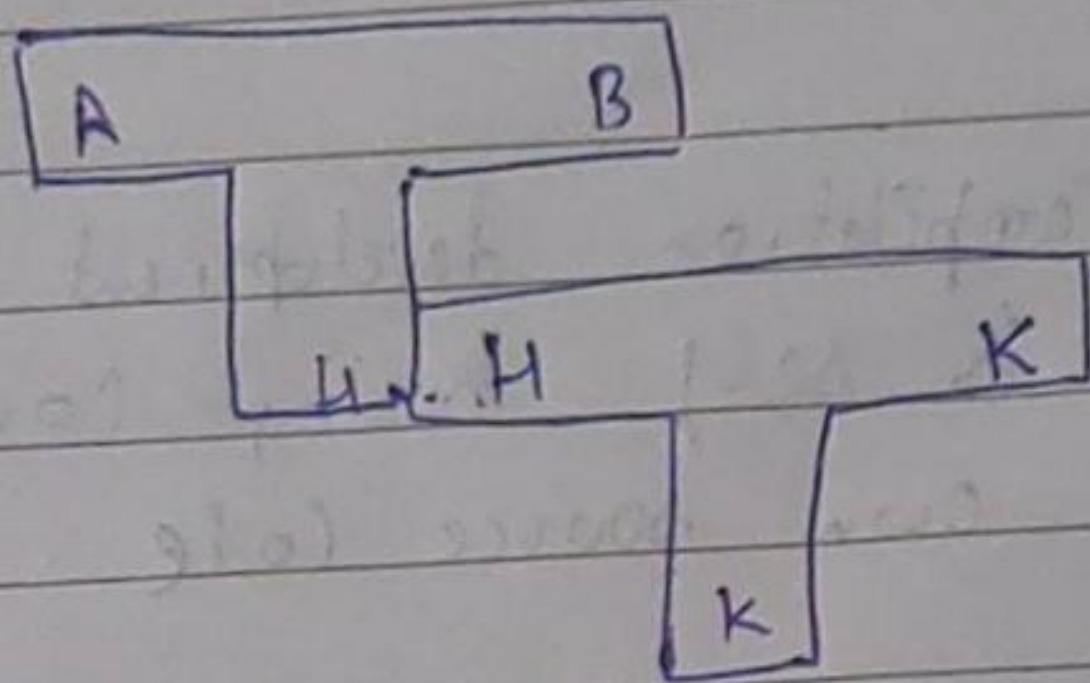 A B
H H K
K